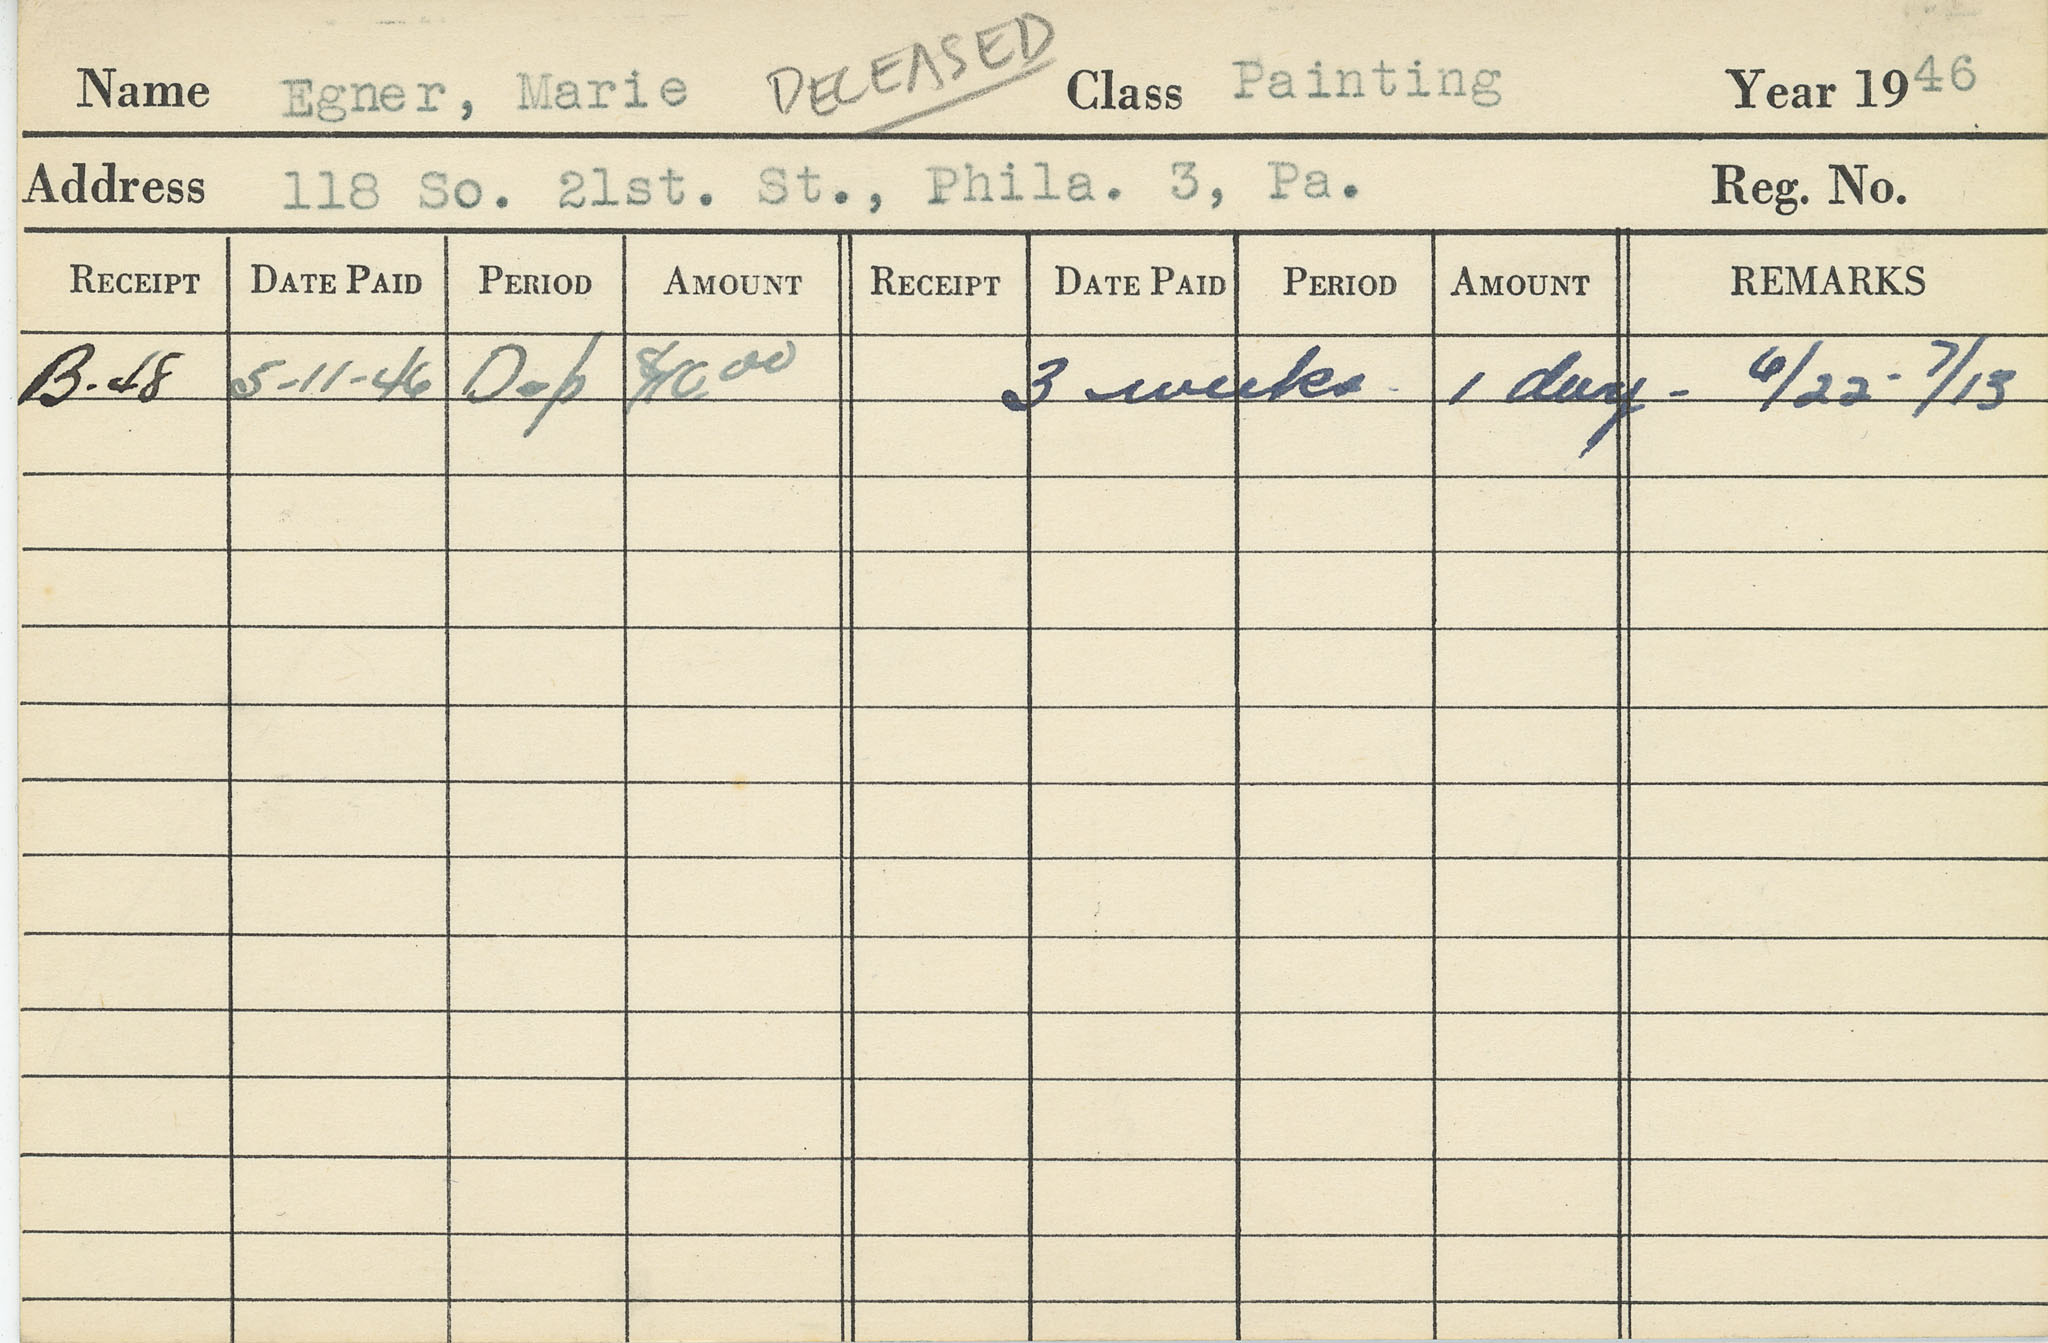 Name Egner, Marie DECEASED Class Painting Year 1946
Address 118 So. 21st. St., Phila. 3, Pa. Reg. No.
RECEIPT DATE PAID PERIOD AMOUNT RECEIPT DATE PAID PERIOD AMOUNT REMARKS
B-48 5-11-46 Dep $10.00 3 weeks - 1 day - 6/22 - 7/13